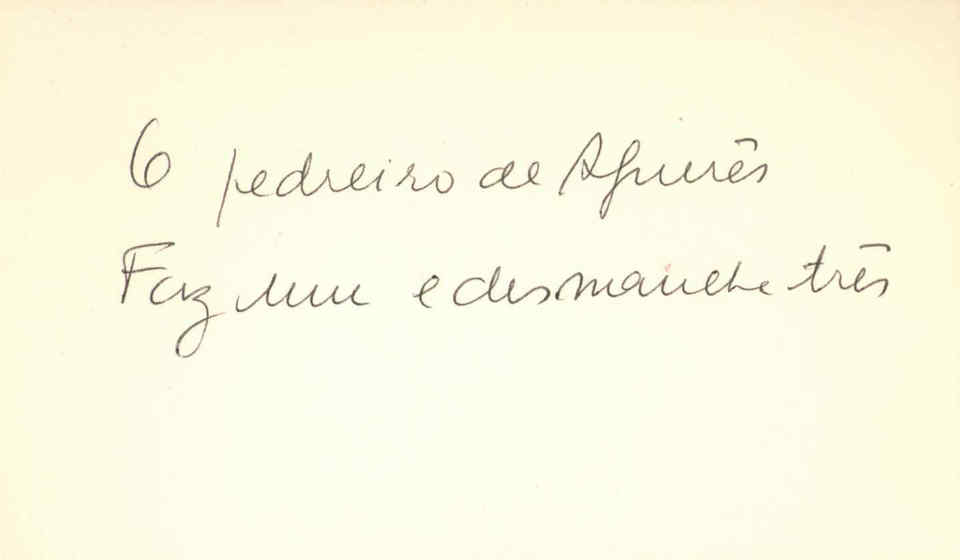 O pedreiro de
Faz um e desmancha três